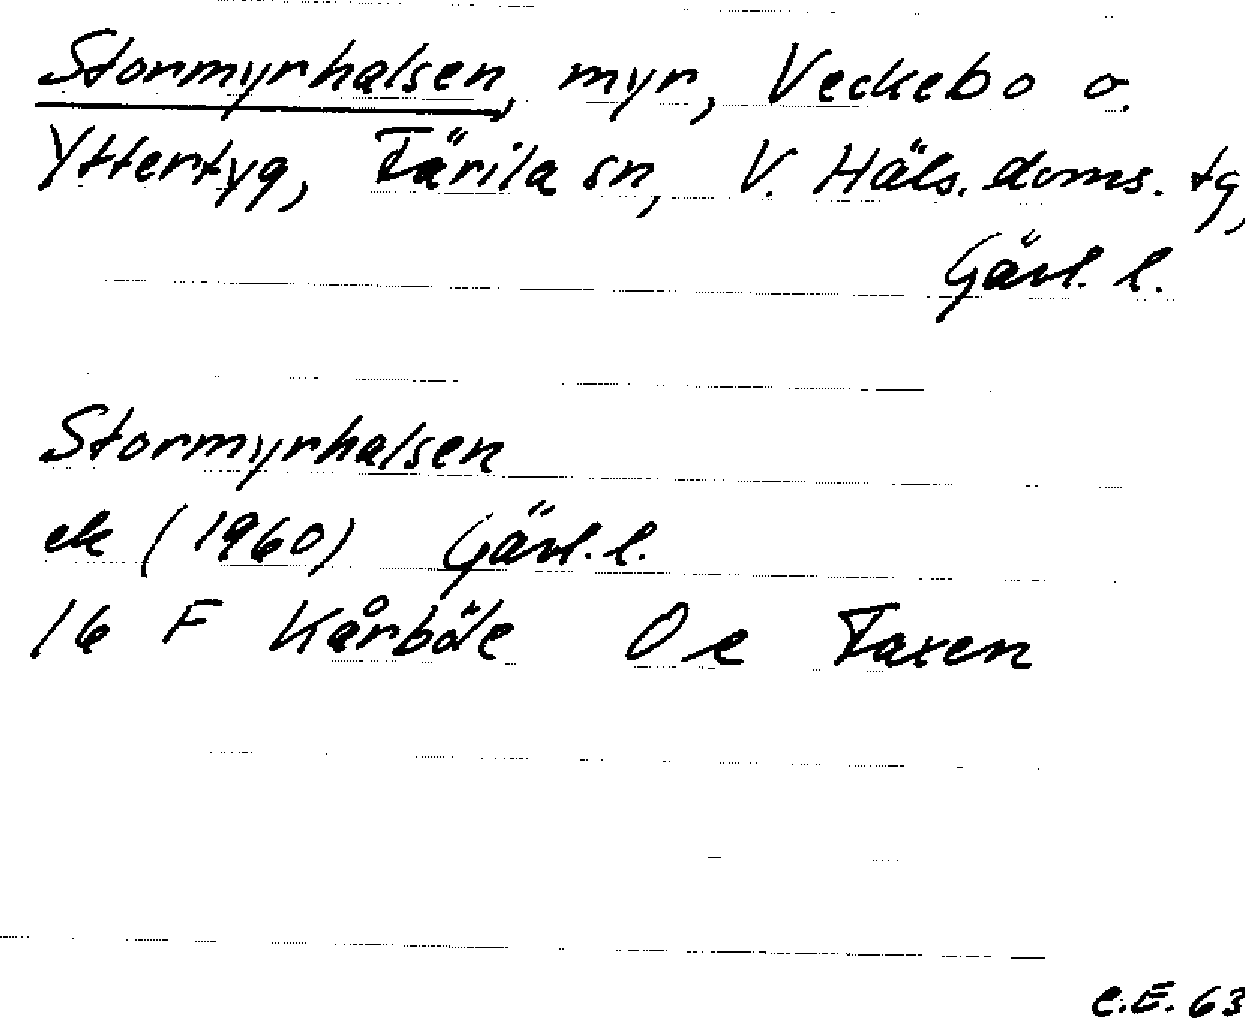 Stormyrhalsen, myr, Veckebo o.
Yttertyg, Färila sn, V. Häls. doms. tg,
Gävl. l.
Stormyrhalsen
ek (1960) Gävl. l.
16 F Kårböle O e Taxen
C.E. 63